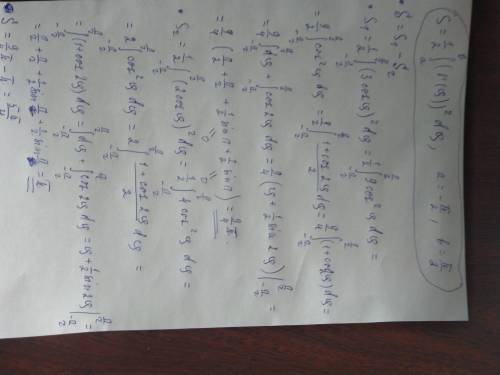 S = 1/2 ∫_a^b (r(φ))² dφ, a = -π/2, b = π/2
• S = S₁ - S₂
• S₁ = 1/2 ∫_{-π/2}^{π/2} (3cosφ)² dφ = 1/2 ∫_{-π/2}^{π/2} 9cos²φ dφ =
= 9/2 ∫_{-π/2}^{π/2} cos²φ dφ = 9/2 ∫_{-π/2}^{π/2} (1+cos2φ)/2 dφ = 9/4 ∫_{-π/2}^{π/2} (1+cos2φ) dφ =
= 9/4 ∫_{-π/2}^{π/2} dφ + ∫_{-π/2}^{π/2} cos2φ dφ = 9/4 (φ + 1/2 sin2φ) |_{-π/2}^{π/2} =
= 9/4 (π/2 + π/2 + 1/2 sinπ + 1/2 sinπ) = 9/4 π
• S₂ = 1/2 ∫_{-π/2}^{π/2} (2cosφ)² dφ = 1/2 ∫_{-π/2}^{π/2} 4cos²φ dφ =
= 2 ∫_{-π/2}^{π/2} cos²φ dφ = 2 ∫_{-π/2}^{π/2} (1+cos2φ)/2 dφ =
= ∫_{-π/2}^{π/2} (1+cos2φ) dφ = ∫_{-π/2}^{π/2} dφ + ∫_{-π/2}^{π/2} cos2φ dφ = φ + 1/2 sin2φ |_{-π/2}^{π/2} =
= π/2 + π/2 + 1/2 sinπ + 1/2 sinπ = π
• S = 9/4 π - π = 5π/4